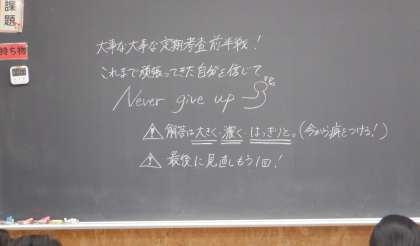 課題
持ち物
大事な大事な定期考査前半戦!
これまで頑張ってきた自分を信じて
Never give up
⚠ 解答は大きく・濃く・はっきりと。(今から癖をつける!)
⚠ 最後に見直しもう1回!